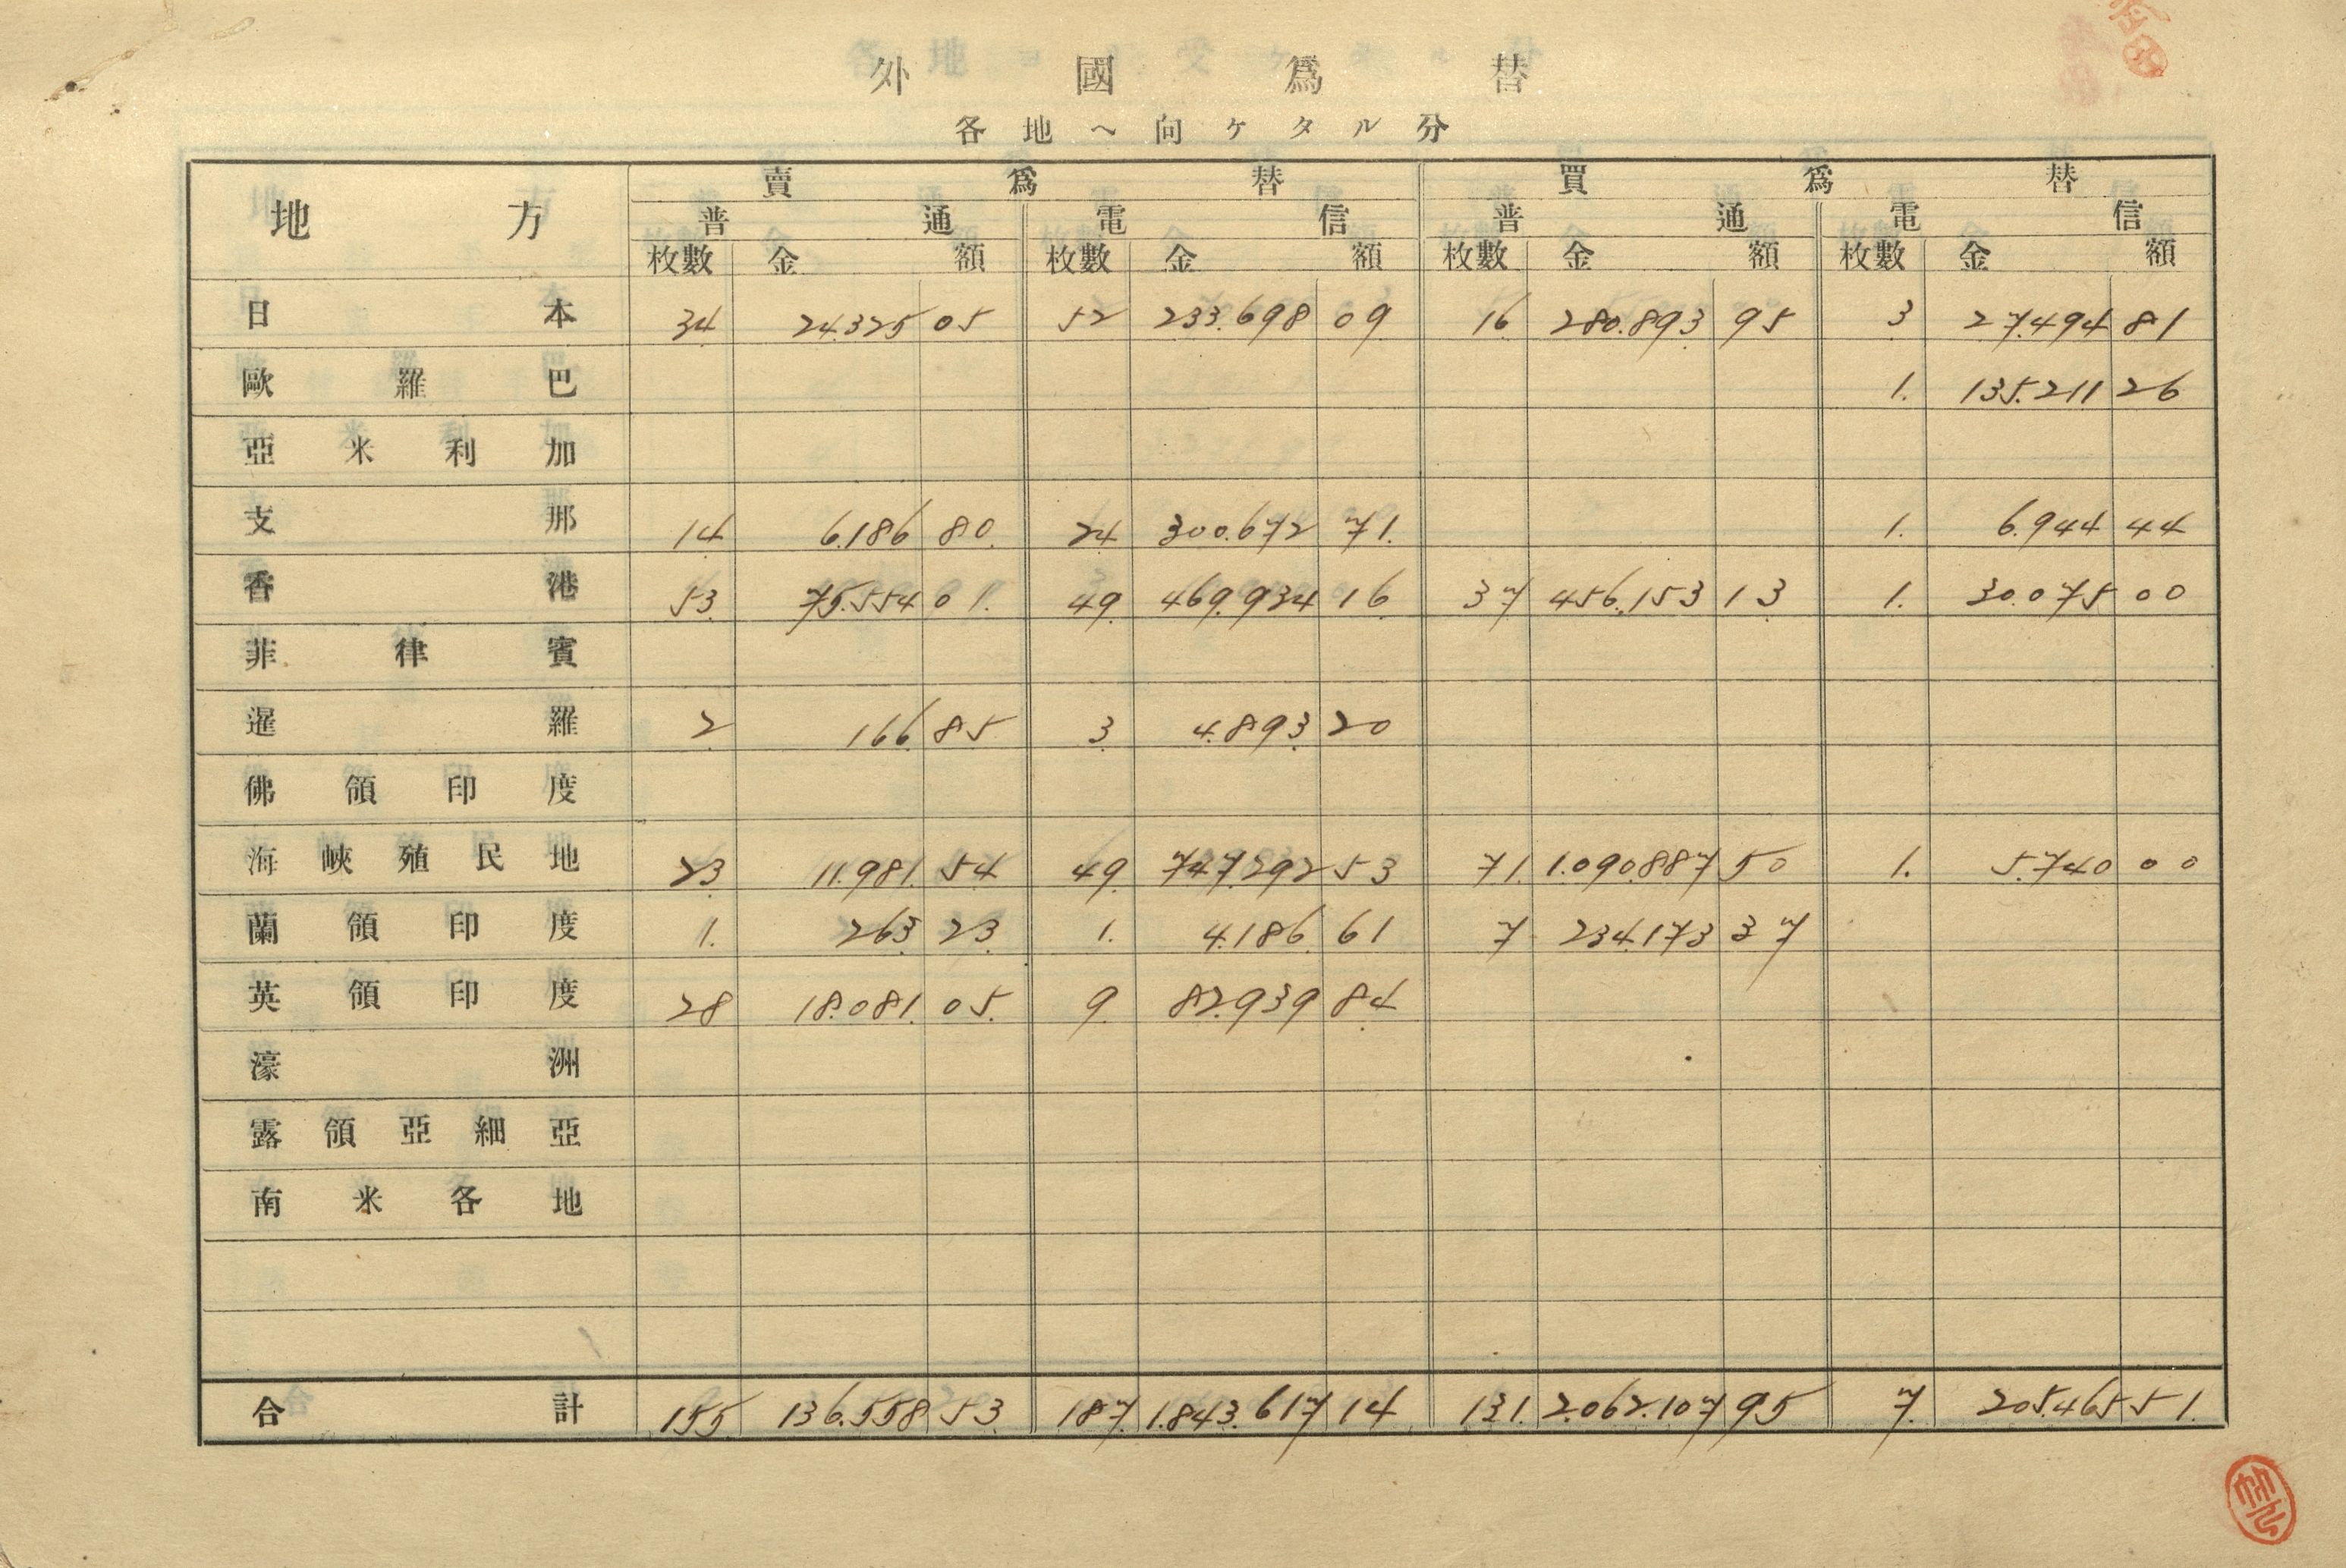 外國爲替
各地へ向ケタル分
地方 賣爲替 買爲替
普通 電信 普通 電信
枚數 金額 枚數 金額 枚數 金額 枚數 金額
日本 34 24.325 05 52 233.698 09 16 280.893 95 3 27.494 81
歐羅巴 1. 135.211 26
亞米利加
支那 14 6.186 80 24 300.672 71 1. 6.944 44
香港 53 75.554 01 49 469.934 16 37 456.153 13 1. 30.075 00
菲律賓
暹羅 2 166 85 3 4.893 20
佛領印度
海峽殖民地 23 11.981 54 49 747.292 53 71 1.090.887 50 1. 5.740 00
蘭領印度 1. 263 23 1. 4.186 61 7 234.173 37
英領印度 28 18.081 05 9 82.939 84
濠洲
露領亞細亞
南米各地
合計 155 136.558 53 187 1.843.617 14 131 2.062.107 95 7 205.465 51